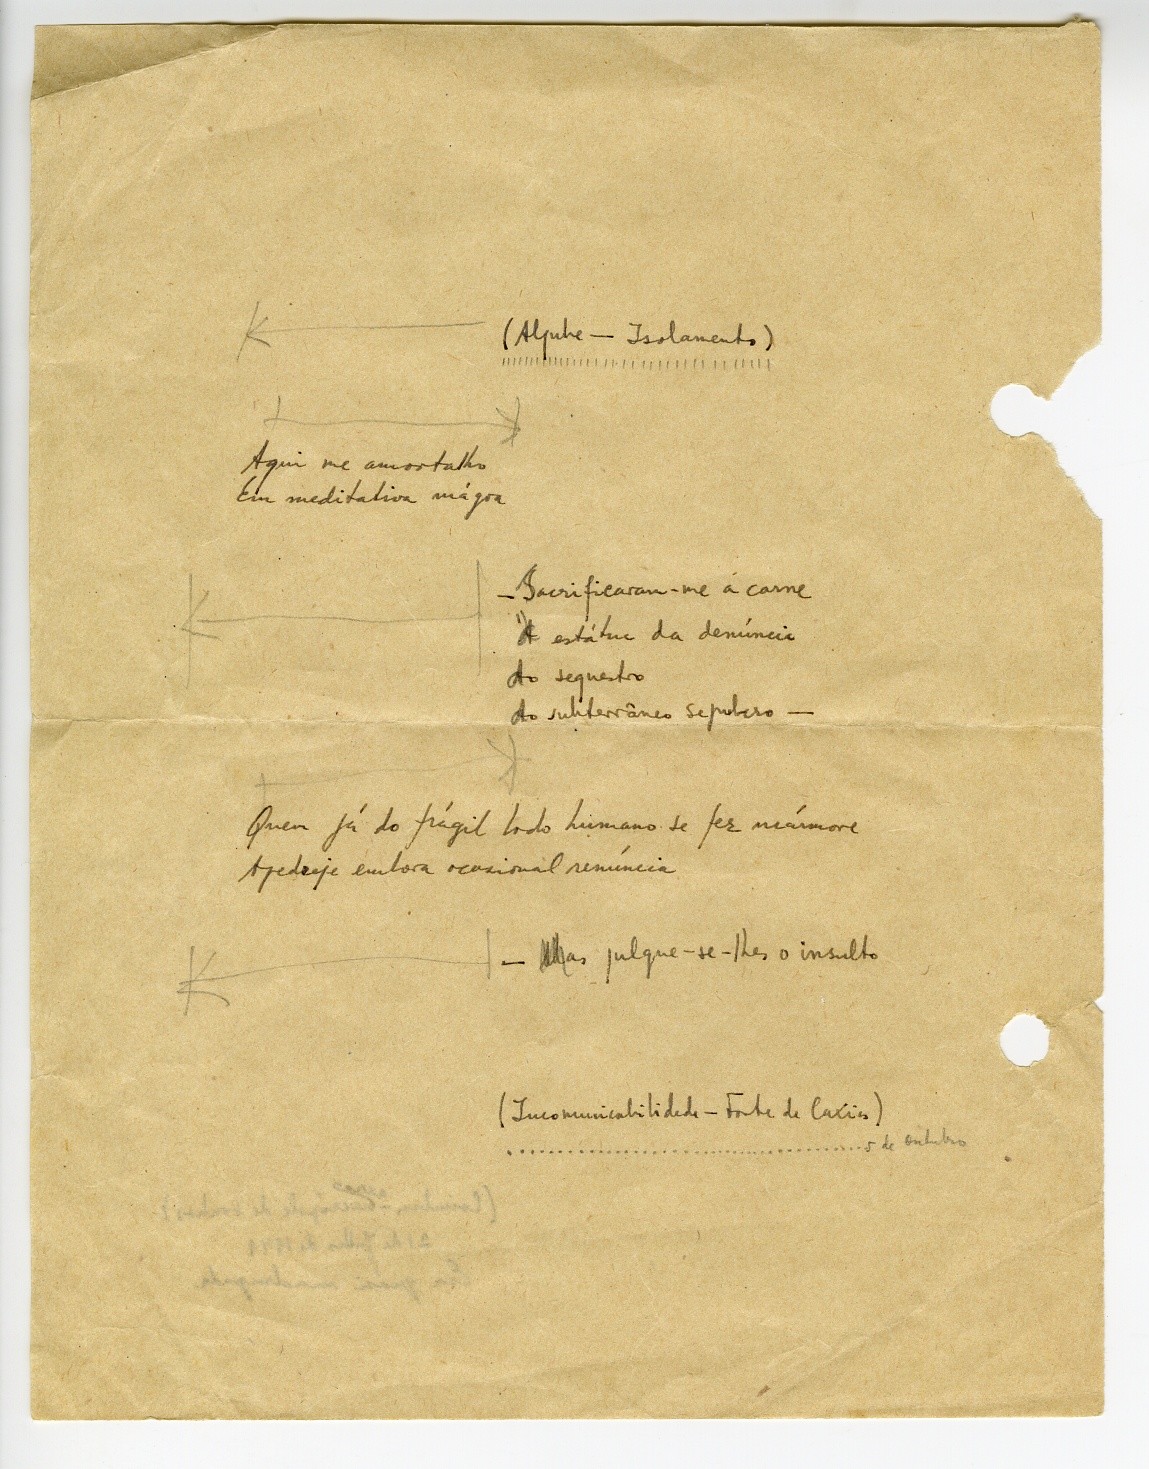 (Aljube — Isolamento)
Aqui me amortalho
Em meditativa mágoa
— Sacrificaram-me a carne
À estátua da denúncia
do sequestro
do subterrâneo sepulcro —
Quem já do frágil lodo humano se fez mármore
Apedreje embora ocasional renúncia
— Mas julgue-se-lhes o insulto
(Incomunicabilidade — Forte de Caxias)
5 de outubro